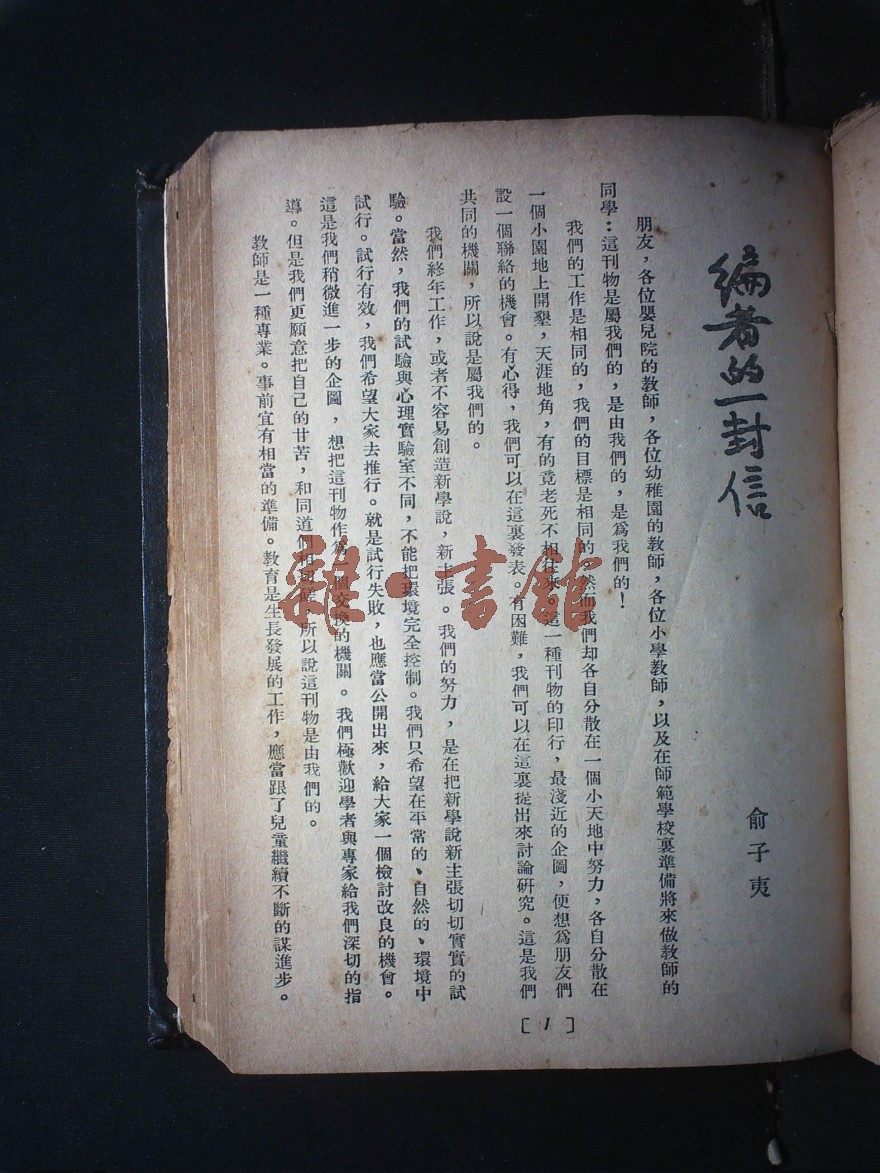 編者的一封信
俞子夷
朋友，各位嬰兒院的教師，各位幼稚園的教師，各位小學教師，以及在師範學校裏準備將來做教師的
同學：這刊物是屬我們的，是由我們的，是爲我們的！
我們的工作是相同的，我們的目標是相同的，然而我們却各自分散在一個小天地中努力，各自分散在
一個小園地上開墾，天涯地角，有的竟老死不相往來。這一種刊物的印行，最淺近的企圖，便想爲朋友們
設一個聯絡的機會。有心得，我們可以在這裏發表。有困難，我們可以在這裏提出來討論研究。這是我們
共同的機關，所以說是屬我們的。
我們終年工作，或者不容易創造新學說，新主張。我們的努力，是在把新學說新主張切切實實的試
驗。當然，我們的試驗與心理實驗室不同，不能把環境完全控制。我們只希望在平常的、自然的、環境中
試行。試行有效，我們希望大家去推行。就是試行失敗，也應當公開出來，給大家一個檢討改良的機會。
這是我們稍微進一步的企圖，想把這刊物作爲一個交換的機關。我們極歡迎學者與專家給我們深切的指
導。但是我們更願意把自己的甘苦，和同道們相切磋，所以說這刊物是由我們的。
教師是一種專業。事前宜有相當的準備。教育是生長發展的工作，應當跟了兒童繼續不斷的謀進步。
〔1〕
雜·書館